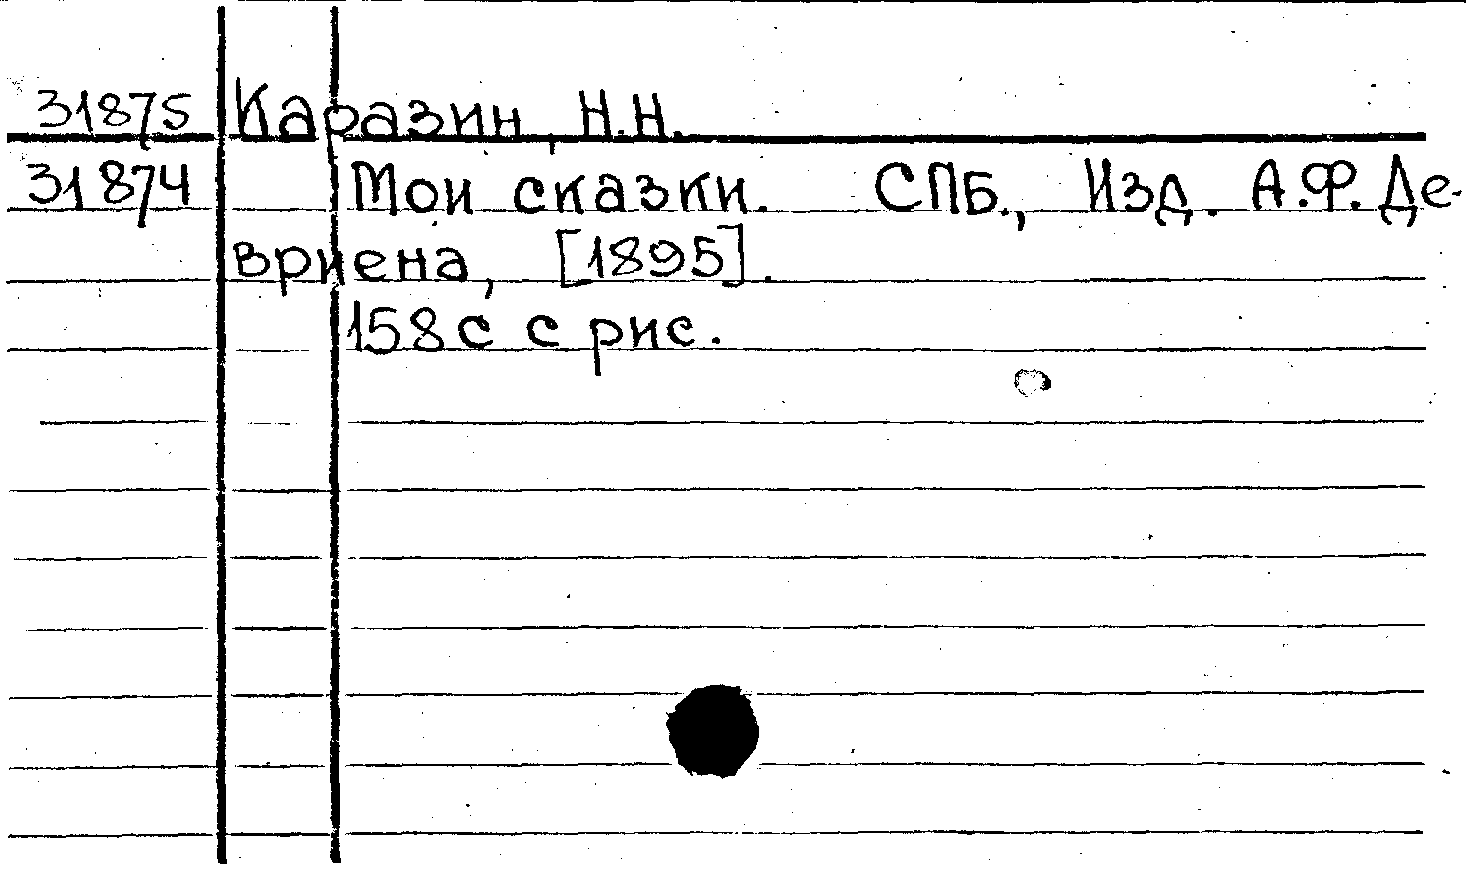 31875 Каразин, Н.Н.
31874 Мои сказки. СПБ., Изд. А.Ф. Де-
вриена, [1895].
158 с с рис.